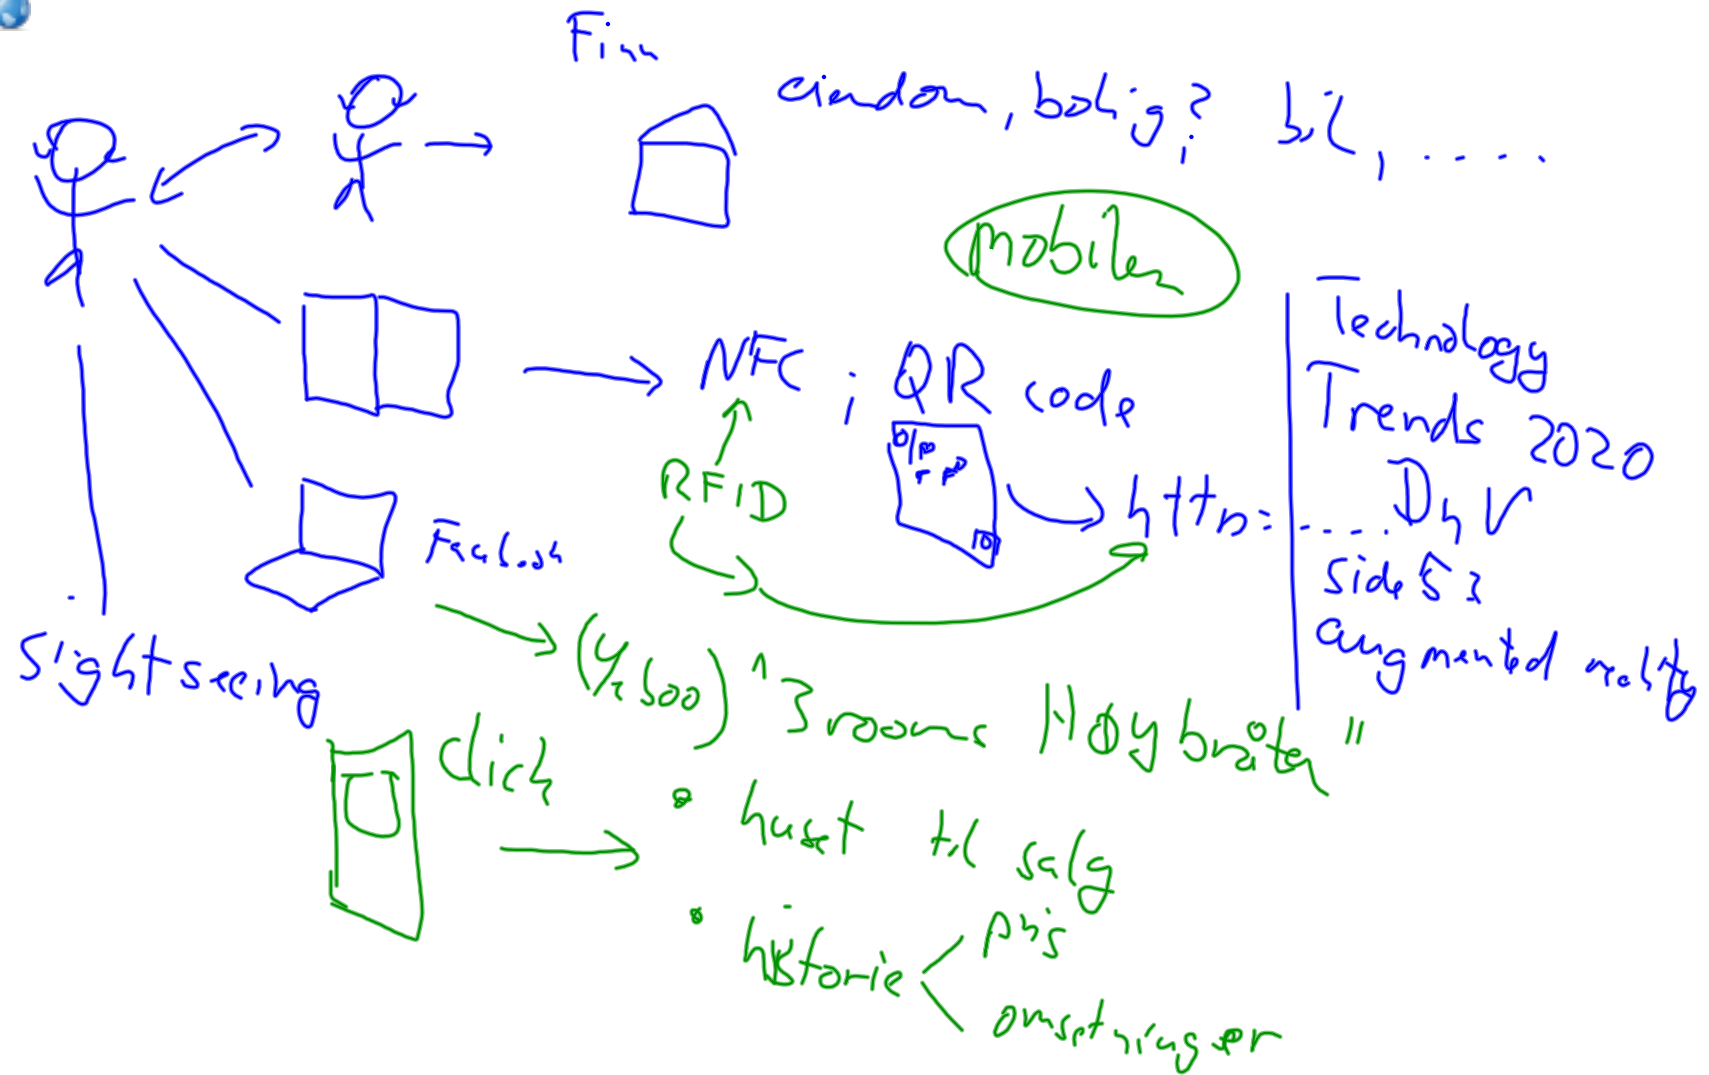 Finn
eiendom, bolig? bil, .....
mobilen
NFC ; QR code
RFID
http: .....
Technology
Trends 2020
DnV
side 53
augmented reality
Facebook
Sightseeing
"3 rooms Høybråten"
Click
• huset til salg
• historie
pris
omsetninger